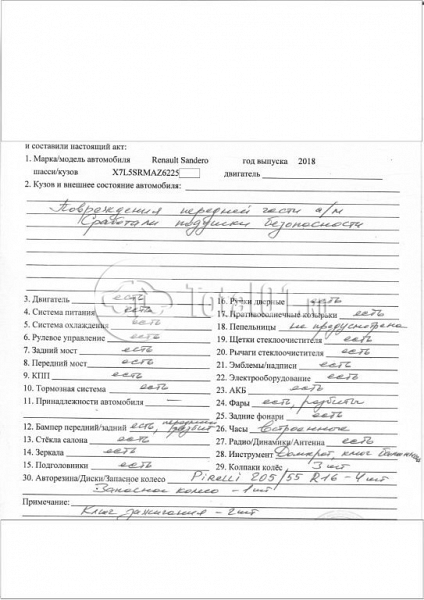 и составили настоящий акт:
1. Марка/модель автомобиля Renault Sandero год выпуска 2018
шасси/кузов X7L5SRMAZ6225 двигатель
2. Кузов и внешнее состояние автомобиля:
Повреждения передней части а/м
Сработали подушки безопасности
Total01.ru
3. Двигатель есть
4. Система питания есть
5. Система охлаждения есть
6. Рулевое управление есть
7. Задний мост есть
8. Передний мост есть
9. КПП есть
10. Тормозная система есть
11. Принадлежности автомобиля –
12. Бампер передний/задний есть, передний разбит
13. Стёкла салона есть
14. Зеркала есть
15. Подголовники есть
16. Ручки дверные есть
17. Противосолнечные козырьки есть
18. Пепельницы не предусмотрена
19. Щетки стеклоочистителя есть
20. Рычаги стеклоочистителя есть
21. Эмблемы/надписи есть
22. Электрооборудование есть
23. АКБ есть
24. Фары есть, разбиты
25. Задние фонари есть
26. Часы встроенное
27. Радио/Динамики/Антенна есть
28. Инструмент Домкрат, ключ балонный
29. Колпаки колёс 3 шт
30. Авторезина/Диски/Запасное колесо Pirelli 205/55 R16 - 4 шт
Запасное колесо - 1 шт
Примечание:
Ключ зажигания - 2 шт